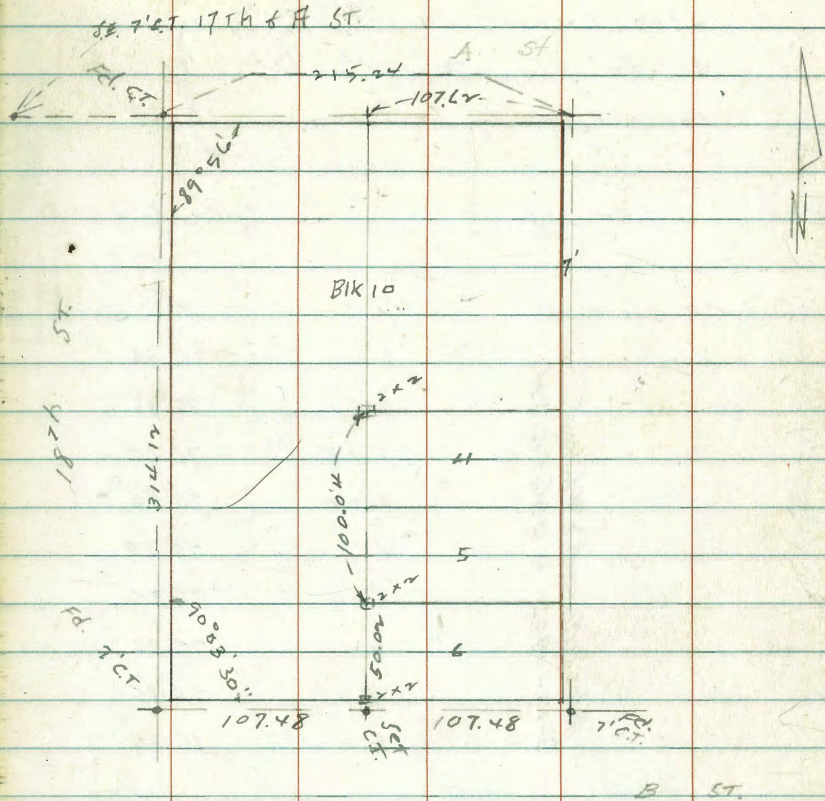 S.E. 7' C.T. 17Th & A ST.
A St
Fd. C.T.
215.24
107.62
89°56'
N
7'
Blk 10
18Th ST.
314.12
2x2
4
100.04
5
2x2
Fd. 7' C.T.
90°03'30"
50.02
6
2x2
107.48
Set C.T.
107.48
Fd. 7' C.T.
B ST.